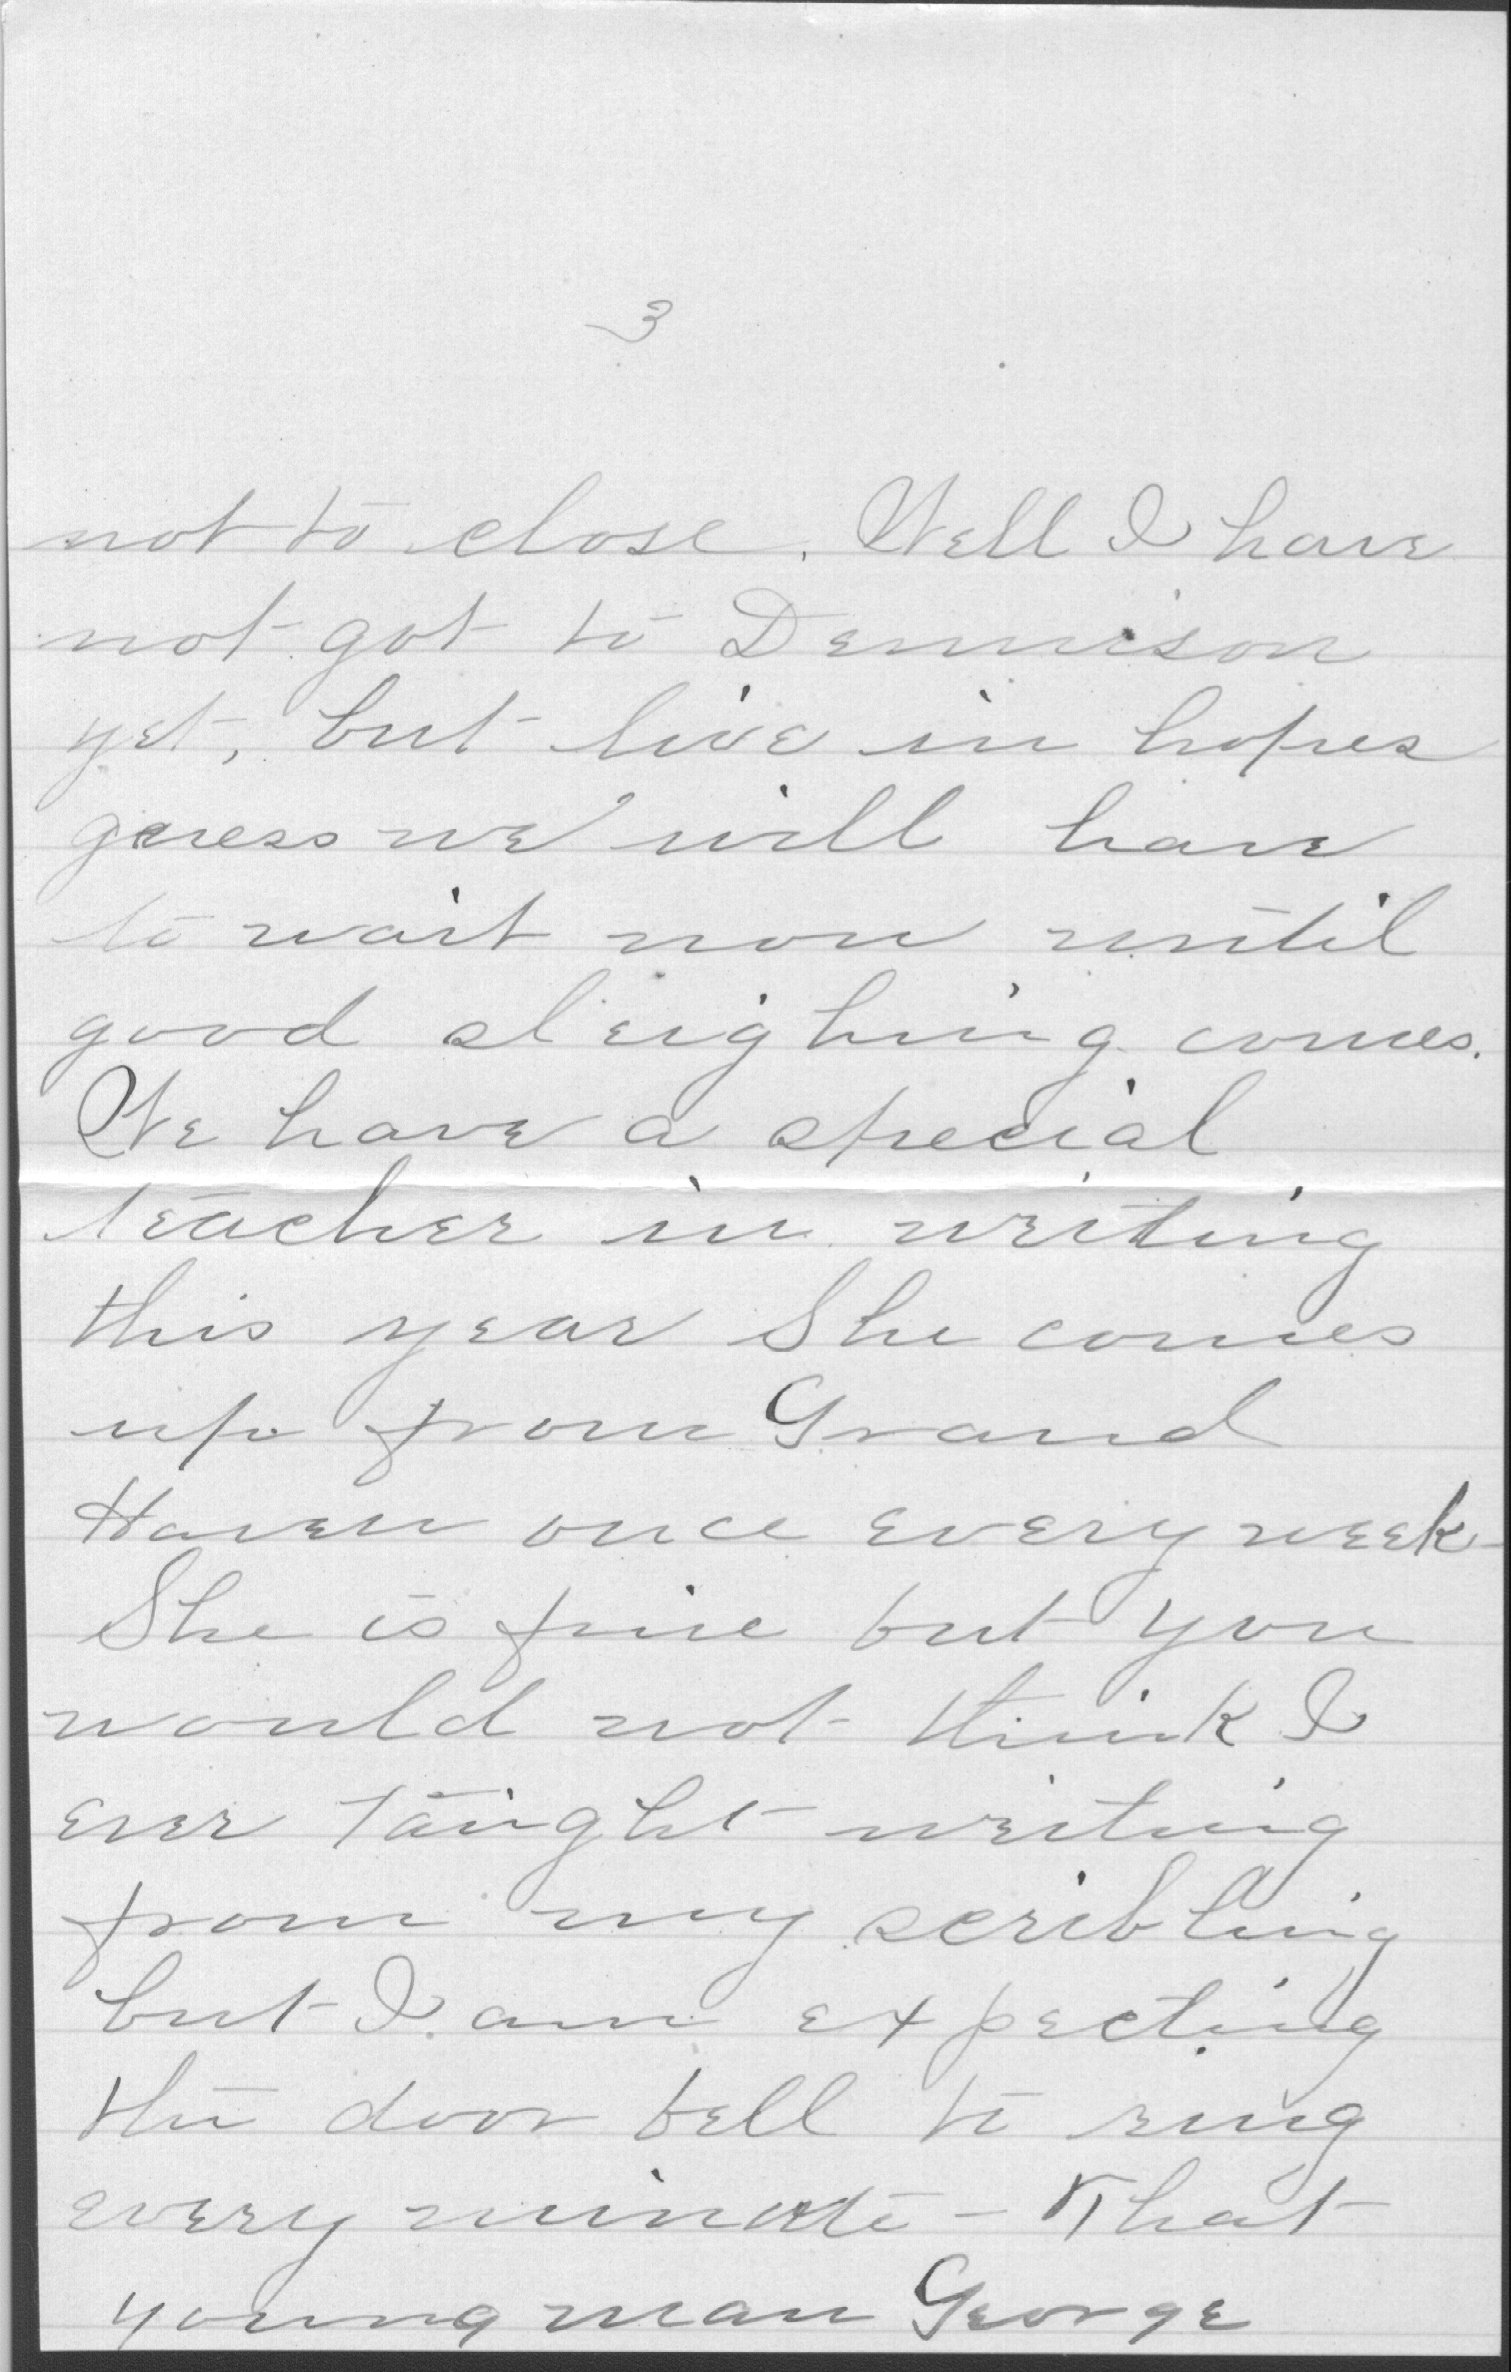 3
not to close. Well I have
not got to Dennison
yet, but live in hopes
guess we will have
to wait now until
good sleighing comes.
We have a special
teacher in writing
this year She comes
up from Grand
Haven once every week-
She is fine but you
would not think I
ever taught writing
from my scribling
but I am expecting
the door bell to ring
every minute - That
young man George